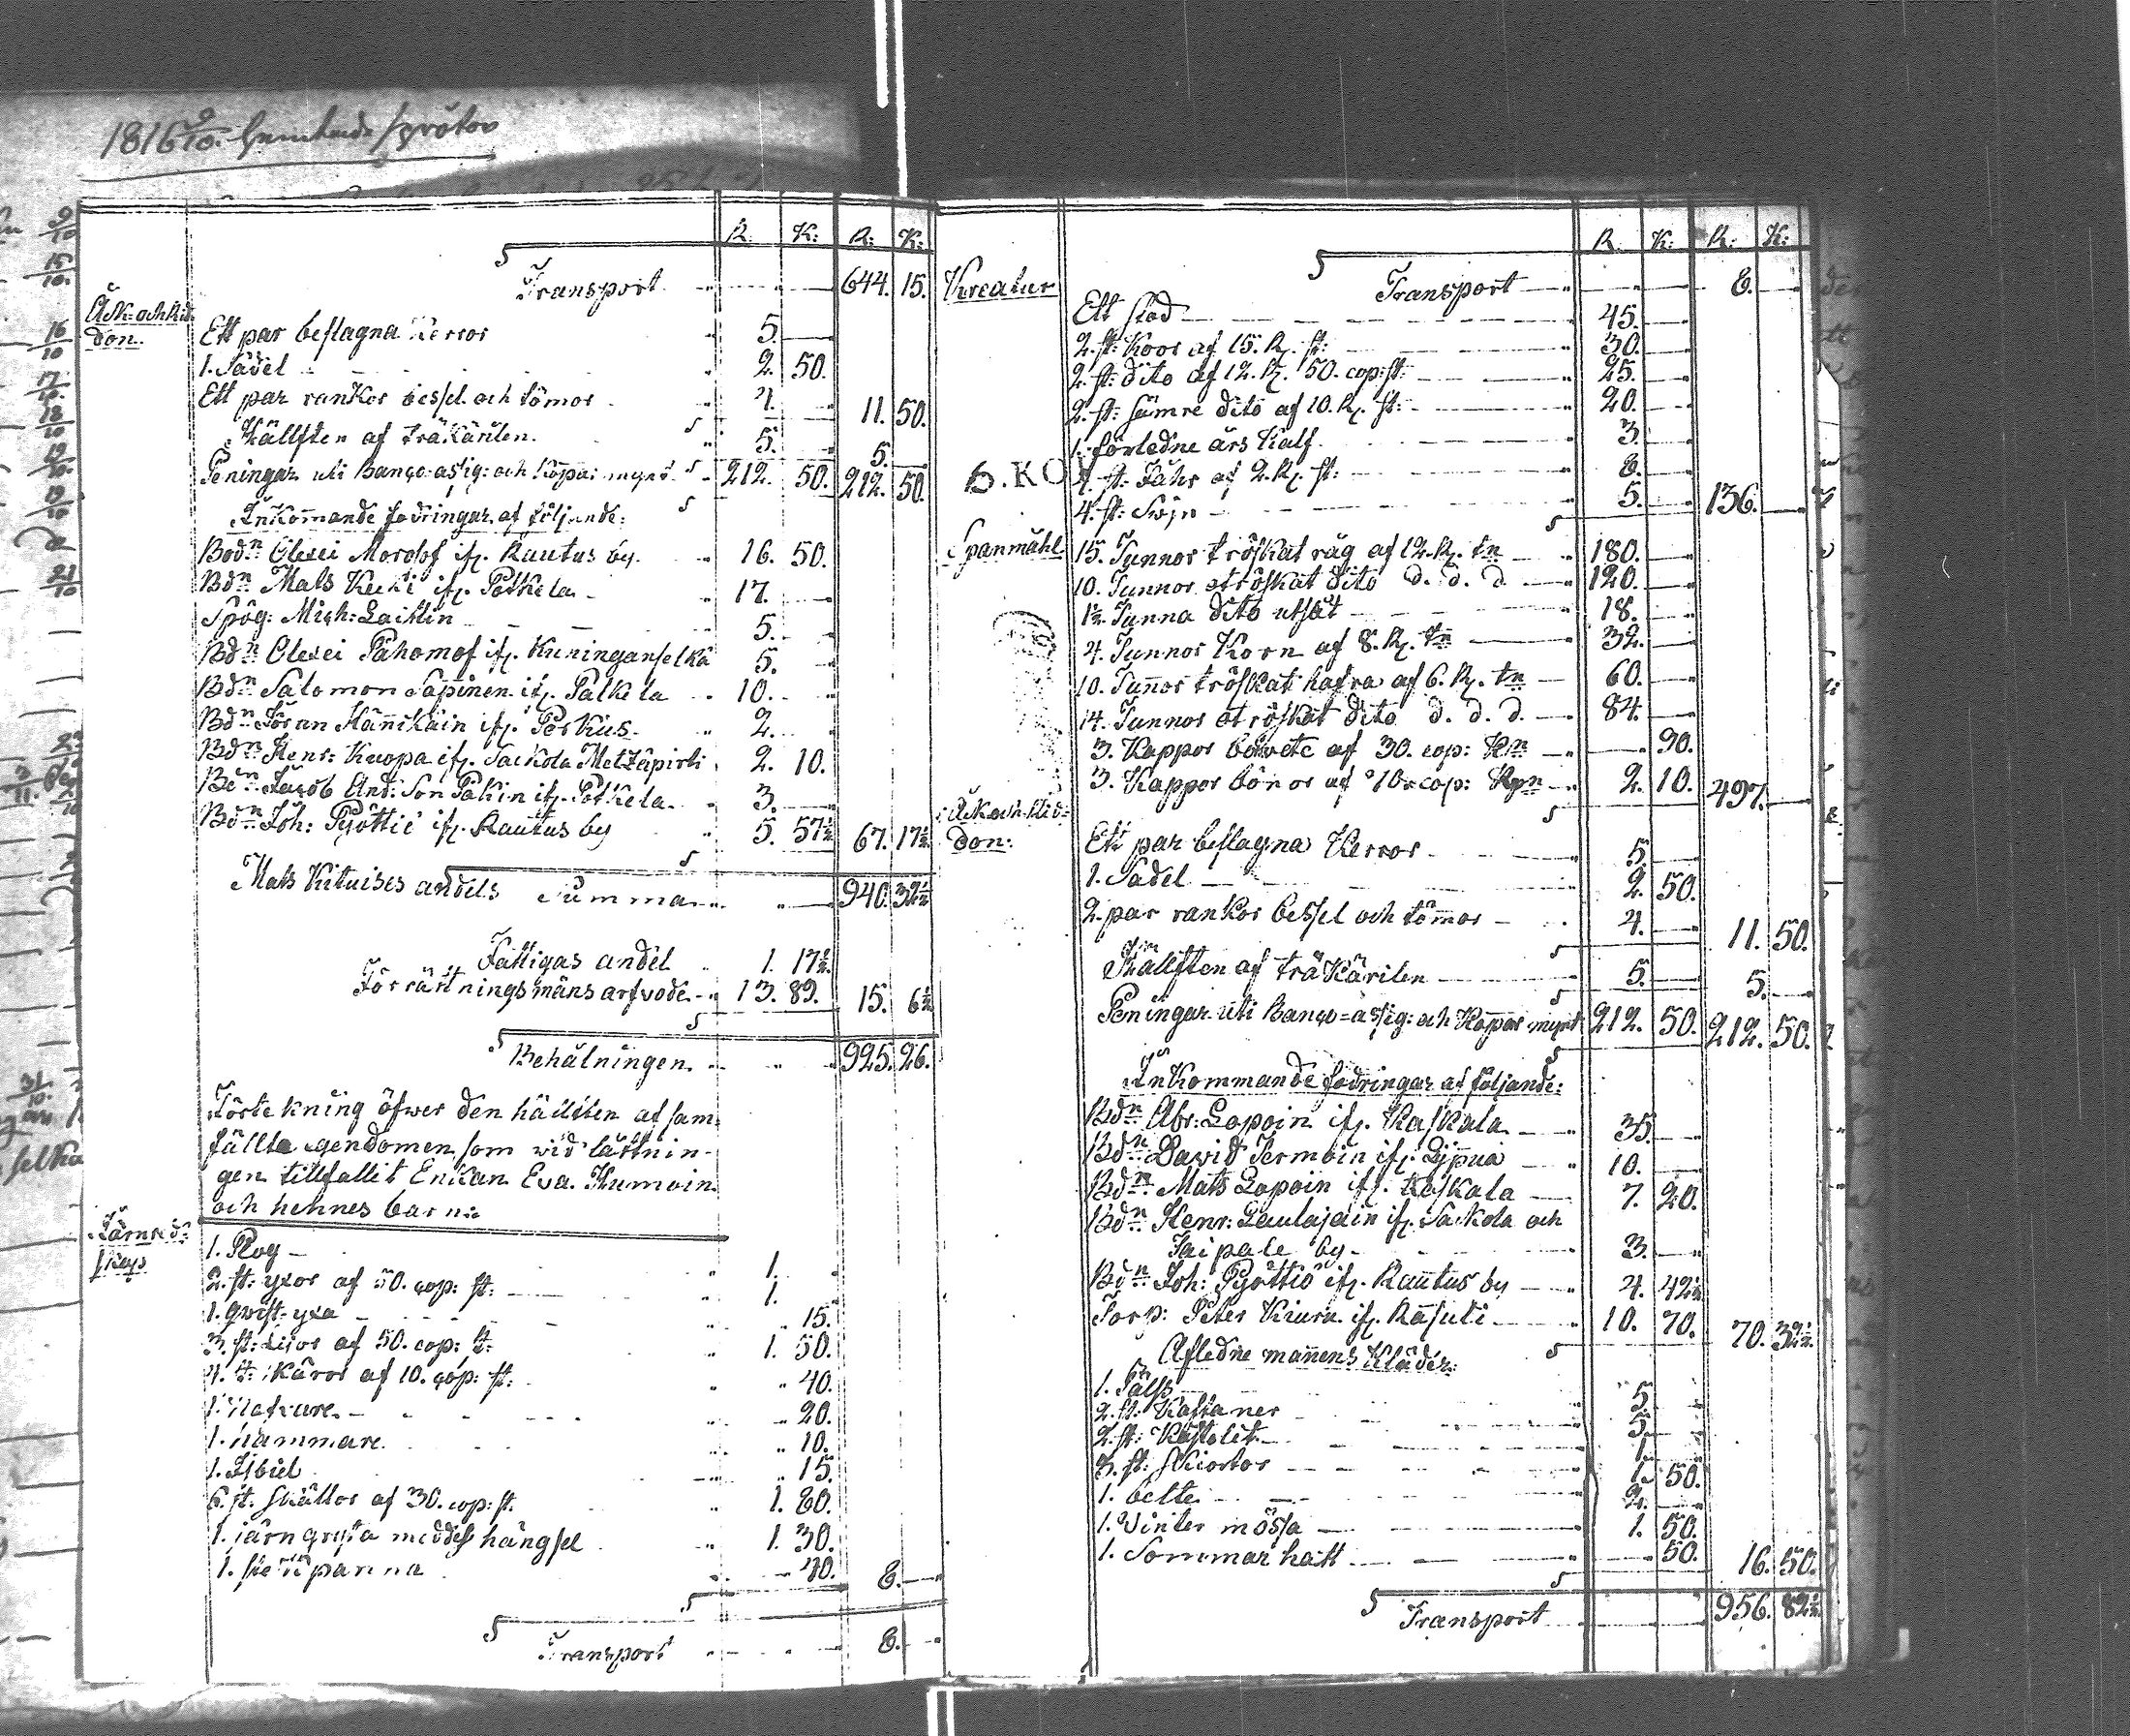 1816 9/10.
R. K: R: K:
Transport 644. 15.
Åk- och Rid-
don. Ett par beslagna Kerror 5.
1. Sadel 2. 50.
Ett par rankor bessel och tömor 4. 11. 50.
Hällften af träkärilen. 5. 5.
Peningar uti Banco-assig: och Koppar mynt 212. 50. 212. 50.
Inkommande fodringar af följande:
Bdn Olexei Morosof ifr. Rautus by. 16. 50.
Bdn Mats Kecki ifr. Potkela 17.
Spög: Mich: Laitin 5.
Bdn Olexei Pahomof ifr. Kuninganselkä 5.
Bdn Salomon Sapinen ifr. Palkela 10.
Bdn Jöran Hännikäin ifr. Perkus. 2.
Bdn Henr: Kuopa ifr. Sackola Metzäpirti 2. 10.
Bdn Jacob And: Son Pakin ifr. Potkela. 3.
Bdn Joh: Pyöttiö ifr. Rautus by 5. 57½ 67. 17½
Mats Kituises andels Summa 940. 32½
Fattigas andel 1. 17½
Förrättningsmäns arfvode 13. 89. 15. 6½
Behålningen 925. 26.
Förtekning öfwer den hällften af sam-
fällta egendomen som vid lättnin-
gen tillfallit Enkan Eva Humoin
och hennes barn:
Järnred-
skap
1. Plog 1.
2. st: yxor af 50. cop: st: 1.
1. qvist-yxa 15.
3. st: Liior af 50. cop: st: 1. 50.
4. st: skäror af 10. cop: st: 40.
1. Nafvare 20.
1. hammare 10.
1. Isbiel 15.
6. st. skällor af 30. cop: st. 1. 80.
1. järn gryta meddels hängsel 1. 30.
1. stekpanna 40. 8.
Transport 8.
R. K: R: K:
Transport 8.
Kreatur
Ett Stod 45.
2. st: Koor af 15. R. st: 30.
2. st: dito af 12. R. 50. cop: st: 25.
2. st: sämre dito af 10. R. st: 20.
1. förledne års Kalf 3.
4. st: Fåhr af 2. R. st: 8.
4. st: Svin 5. 136.
6. KOV
Spanmåhl 15. Tunnor tröskat råg af 12. R. tn 180.
10. Tunnor otröskat dito d. d. d 120.
1½. Tunna dito utsåt 18.
4. Tunnor Korn af 8. R. tn 32.
10. Tunnor tröskat hafra af 6. R. tn 60.
14. Tunnor otröskat dito d. d. d. 84.
3. Kappor bohvete af 30. cop: Kpn 90.
3. Kappor bönor af 70. cop: Kpn 2. 10. 497.
Åk och Rid-
don: Ett par beslagna Kerror 5.
1. Sadel 2. 50.
2. par rankor bessel och tömor 4. 11. 50.
Hällften af träkärilen 5. 5.
Peningar uti Banco-assig: och Koppar mynt 212. 50. 212. 50.
Inkommande fodringar af följande:
Bdn Abr: Lopoin ifr. Kaskala 35.
Bdn David Termoin ifr. Lijpua 10.
Bdn Mats Lopoin ifr. Kaskala 7. 20.
Bdn Henr: Laulajain ifr. Sackola och
Taipale by 3.
Bdn Joh: Pyöttiö ifr. Rautus by 4. 42½
Torp: Peter Kiuru ifr. Räsuti 10. 70. 70. 32½
Afledne mannens Kläder:
1. Pälss 5.
2. st: Kaftaner 5.
2. st: Kastolet 1.
3. st: skiortor 1. 50.
1. belte 2.
1. Winter mössa 1. 50.
1. Sommar hatt 50. 16. 50.
Transport 956. 82½